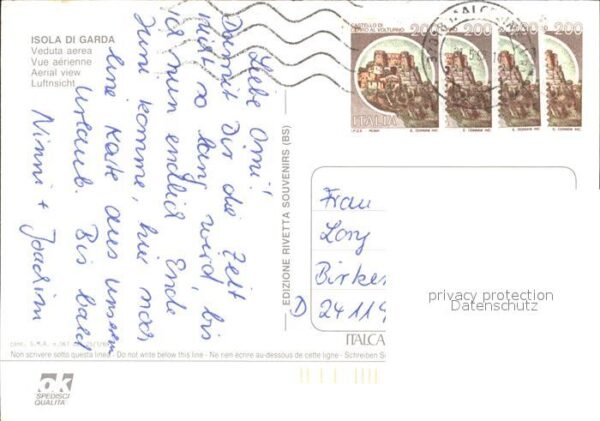 ISOLA DI GARDA
Veduta aerea
Vue aérienne
Aerial view
Luftansicht
Liebe Omi!
Damit Dir die Zeit
nicht so lang wird, bis
wir nun endlich Ende
Juni kommen, hier noch
eine Karte aus unserem
Urlaub. Bis bald
Ninni + Joachim
EDIZIONE RIVETTA SOUVENIRS (BS)
CASTELLO DI
CERRO AL VOLTURNO
200
200
200
200
ITALIA
I.P.Z.S. ROMA
E. DONNINI INC.
E. DONNINI INC.
E. DONNINI INC.
E. DONNINI INC.
Frau
Birke
D 24119
privacy protection
Datenschutz
ITALCA
Non scrivere sotto questa linea - Do not write below this line - Ne rien écrire au-dessous de cette ligne - Schreiben S
ok
SPEDISCI
QUALITÀ